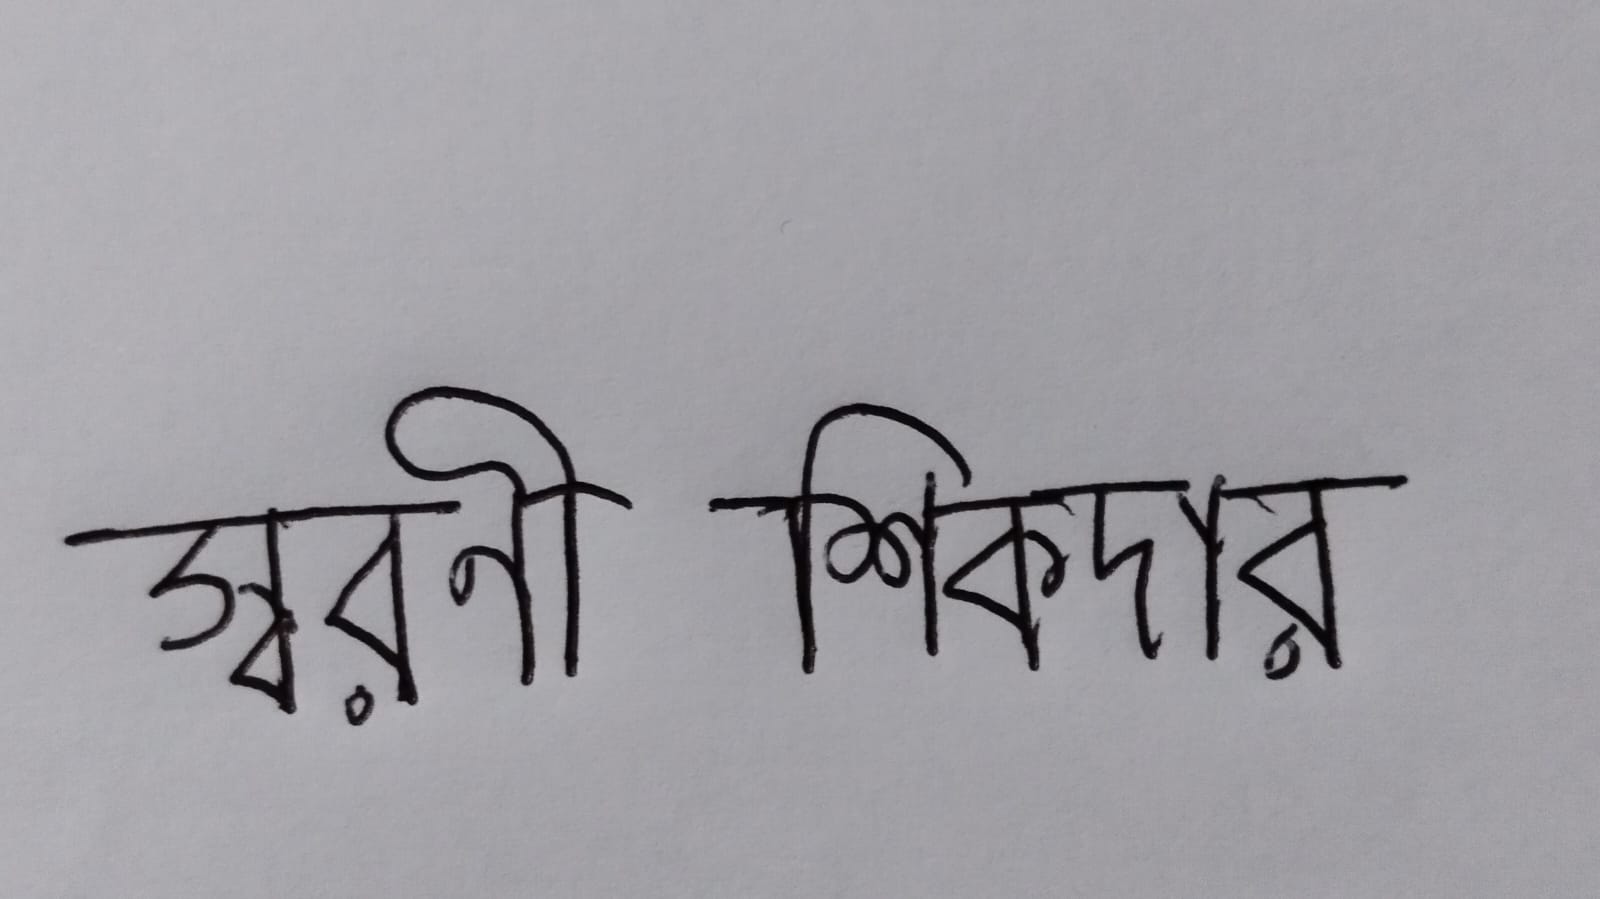 স্বরনী শিকদার